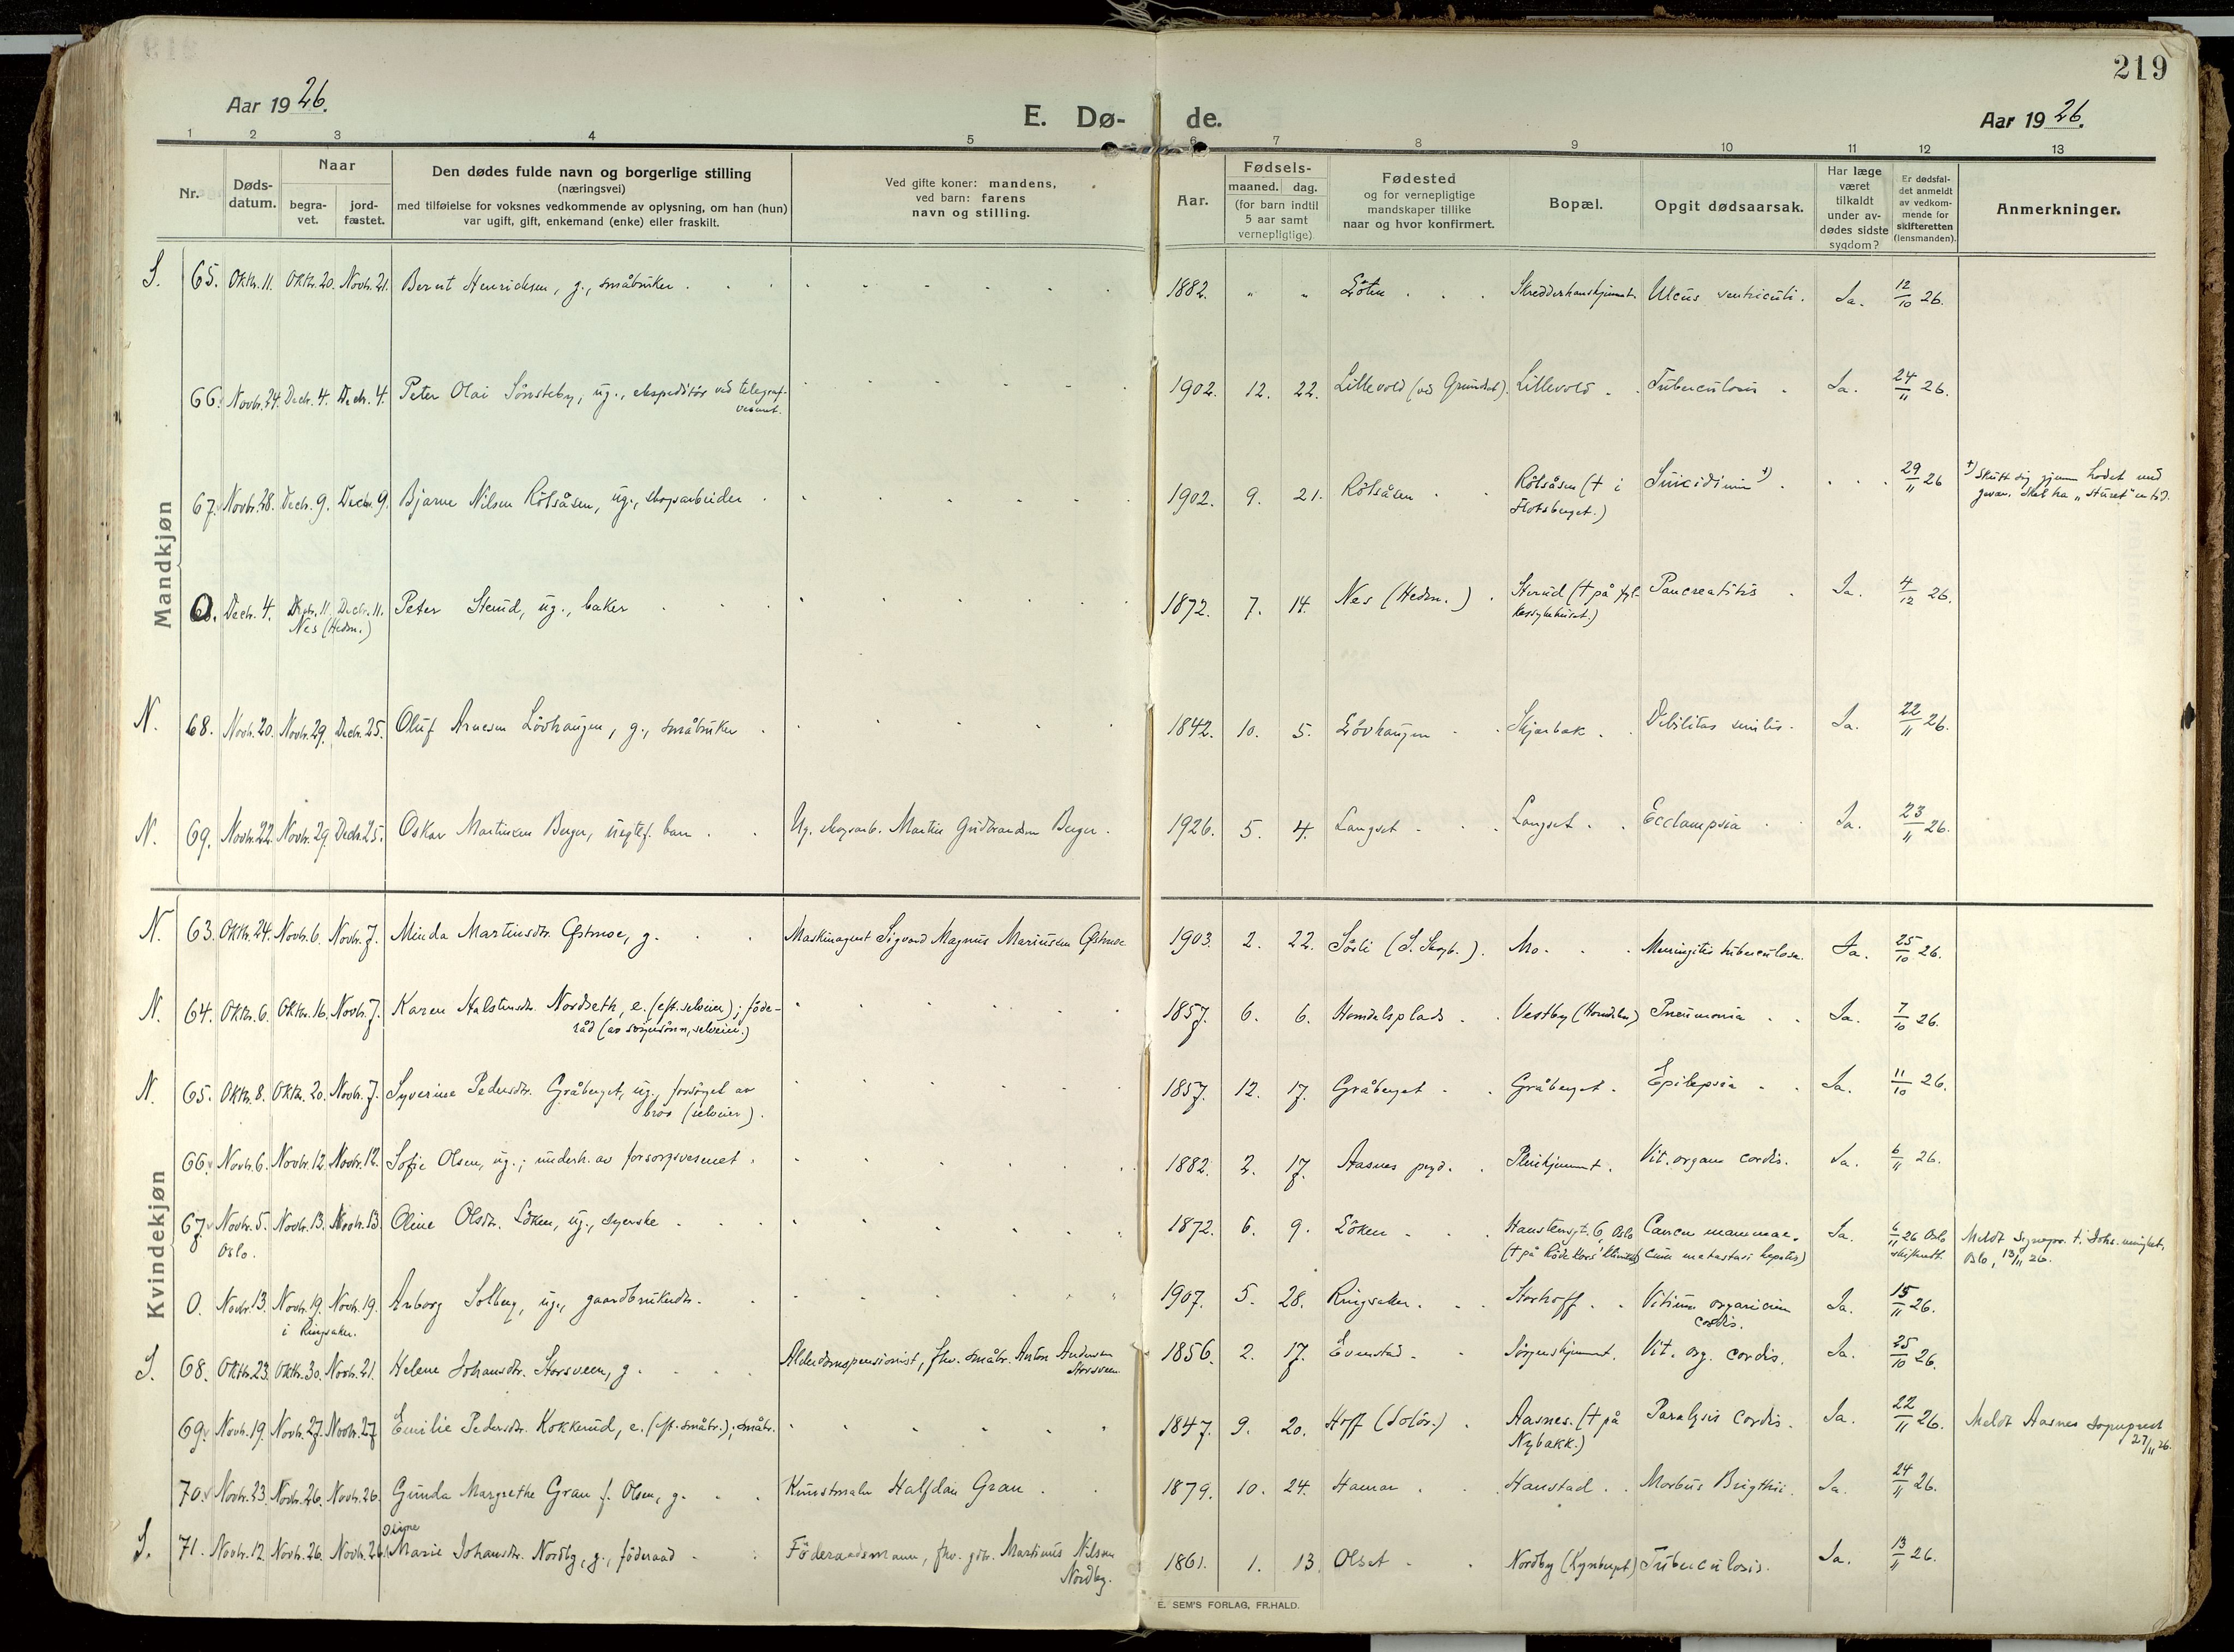 219
Aar 1926.
E. Dø- de.
Aar 1926.
1 2 3 4 5 6 7 8 9 10 11 12 13
Nr.
Døds-
datum.
Naar
begra-
vet.
jord-
fæstet.
Den dødes fulde navn og borgerlige stilling
(næringsvei)
med tilføielse for voksnes vedkommende av oplysning, om han (hun)
var ugift, gift, enkemand (enke) eller fraskilt.
Ved gifte koner: mandens,
ved barn: farens
navn og stilling.
Aar.
Fødsels-
maaned. dag.
(for barn indtil
5 aar samt
vernepligtige)
Fødested
og for vernepligtige
mandskaper tillike
naar og hvor konfirmert.
Bopæl.
Opgit dødsaarsak.
Har læge
været
tilkaldt
under av-
dødes sidste
sygdom?
Er dødsfal-
det anmeldt
av vedkom-
mende for
skifteretten
(lensmanden).
Anmerkninger.
Mandkjøn
S. 65. Oktr. 11. Oktr. 20. Novbr. 21. Bernt Henriksen, g., småbruker 1882. " " Löten Skredderhanskjernet. Ulcus ventriculi. Ja. 12/10 26.
66. Novbr. 24. Decbr. 4. Decbr. 4. Peter Olai Sönsteby, ug., ekspeditör ved telegraf-
vesenet. 1902. 12. 22. Lillevold (ved Grundset). Lillevold Tuberculosis Ja. 24/11 26.
67. Novbr. 28. Decbr. 9. Decbr. 9. Bjarne Nilsen Rölsåsen, ug., skogsarbeider 1902. 9. 21. Rölsåsen Rölsåsen († i Suicidium †) 29/11 26 †) Skutt sig gjennem hodet med
gevær. Skal ha "sturet" en tid.
68. Decbr. 4. Decbr. 11. Decbr. 11. Peter Sterud, ug., baker 1872. 7. 14. Nes (Hedm.) Sterud († på fyl- Pancreatitis Ja. 4/12 26.
Nes (Hedm.) kessykehuset.)
N. 68. Novbr. 20. Novbr. 29. Decbr. 25. Oluf Arnesen Lövhaugen, g., småbruker 1842. 10. 5. Lövhaugen Skjærbak Debilitas senilis. Ja. 22/11 26.
N. 69. Novbr. 22. Novbr. 29. Decbr. 25. Oskar Martinsen Berger, uegtef. barn Ug. skogsarb. Martin Gudbrandsen Berger. 1926. 5. 4. Langset Langset Ecclampsia Ja. 23/11 26.
Kvindekjøn
N. 63. Oktr. 24. Novbr. 6. Novbr. 7. Minda Martinsdtr. Østmoe, g. Maskinagent Sigvard Magnus Mariusen Østmoe 1903. 2. 22. Sörli (S. Skogb.). Mo. Meningitis tuberculosa. Ja. 25/10 26.
N. 64. Oktr. 6. Oktr. 16. Novbr. 7. Karen Halstensdtr. Nordseth, e. (eft. selveier); föde-
råd (av svigersönn, selveier.) 1857. 6. 6. Homdalsplads Vestby Pneumonia Ja. 7/10 26.
N. 65. Oktr. 8. Oktr. 20. Novbr. 7. Syverine Pedersdtr. Gråberget, ug., forsörget av
bror (selveier). 1857. 12. 17. Gråberget Gråberget. Epilepsia Ja. 11/10 26.
66. Novbr. 6. Novbr. 12. Novbr. 12. Sofie Olsen, ug.; underh. av forsorgsvesenet. 1882. 2. 17. Aasnes prgd. Pleiehjemmet. Vit. organ cordis. Ja. 6/11 26.
67. Novbr. 5. Novbr. 13. Novbr. 13. Oline Olsdtr. Löken, ug., syerske 1872. 6. 9. Löken Hansteensgt. 6, Oslo Cancer mammae. Ja. 6/11 26 Oslo Meldt
Oslo. († på Röde Kors' Klinikk) cum metastasi hepatis) skifterett. Oslo, 13/11 26.
0. Novbr. 13. Novbr. 19. Novbr. 19. Anborg Solberg, ug., gaardbrukerdtr. 1907. 5. 28. Ringsaker. Storhoff Vitium organicum
cordis. Ja. 15/11 26.
i Ringsaker.
S. 68. Oktr. 23. Oktr. 30. Novbr. 21. Helene Johansdtr. Storsveen, g. Alderdomspensionist, fhv. småbr. Anton Andersen
Storsveen 1856. 2. 17. Evenstad Vit. org. cordis. Ja. 25/10 26.
69. Novbr. 19. Novbr. 27. Novbr. 27 Emilie Pedersdtr. Kokkerud, e. (eft. småbr.); småbr. 1847. 9. 20. Hoff (Solör.) Aasnes. († på Paralysis cordis. Ja. 22/11 26. Meldt Aasnes sogneprest
Nybakk.) 27/11 26.
70. Novbr. 23. Novbr. 26. Novbr. 26. Gunda Margrethe Gran f. Olsen, g. Kunstmaler Halfdan Gran 1879. 10. 24. Hamar Hanstad Morbus Brigthii. Ja. 24/11 26.
S. 71. Novbr. 12. Novbr. 26. Novbr. 26. Marie Johansdtr. Nordby, g., föderaad Föderaadsmann, fhv. gbr. Martinus Nilsen
Nordby. 1861. 1. 13. Olset Nordby (Kynberget) Tuberculosis. Ja. 13/11 26.
E. SEM'S FORLAG, FR.HALD.